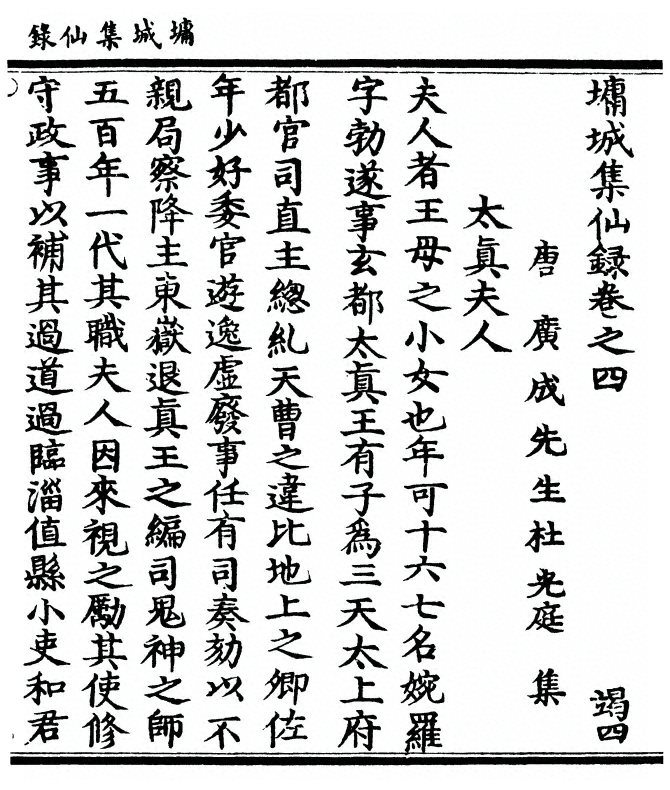 墉城集仙錄
墉城集仙錄卷之四
竭四
唐廣成先生杜光庭集
太眞夫人
夫人者王母之小女也年可十六七名婉羅
字勃遂事玄都太眞王有子爲三天太上府
都官司直主總糺天曹之違比地上之卿佐
年少好委官遊逸虛廢事任有司奏劾以不
親局察降主東嶽退眞王之編司鬼神之師
五百年一代其職夫人因來視之勵其使修
守政事以補其過道過臨淄值縣小吏和君